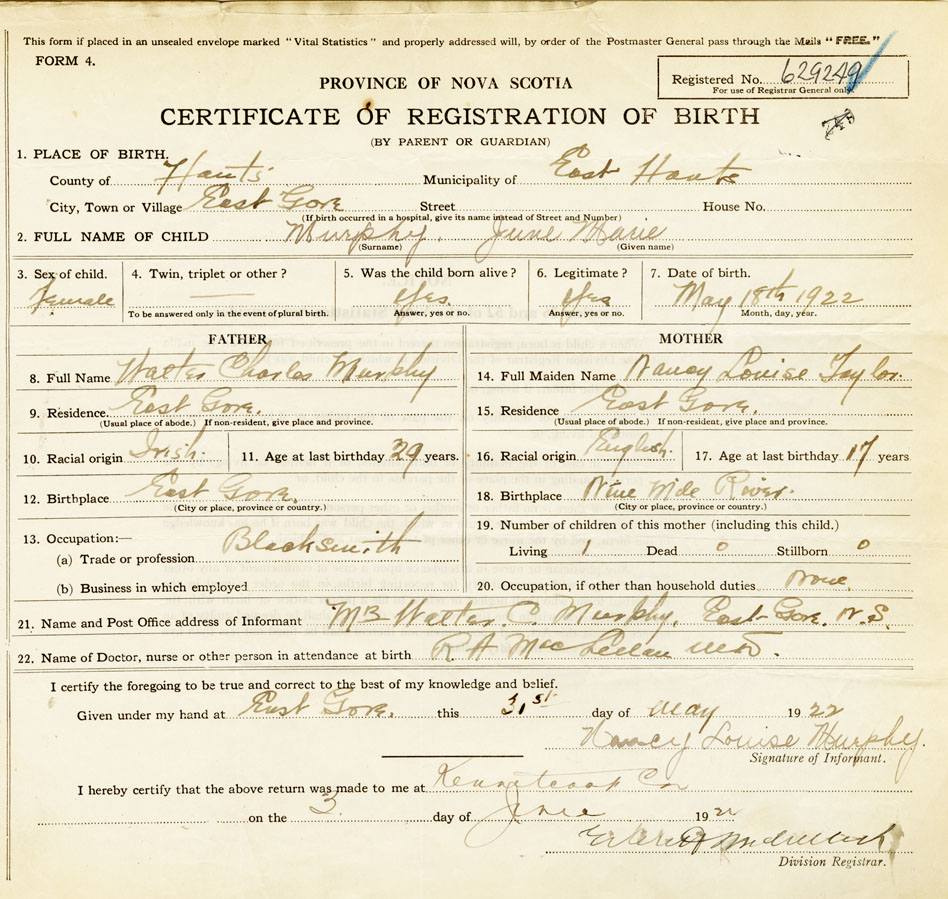 This form if placed in an unsealed envelope marked "Vital Statistics" and properly addressed will, by order of the Postmaster General pass through the Mails "FREE."
FORM 4.
Registered No. 629249
For use of Registrar General only
PROVINCE OF NOVA SCOTIA
CERTIFICATE OF REGISTRATION OF BIRTH
(BY PARENT OR GUARDIAN)
1. PLACE OF BIRTH.
County of Hants Municipality of East Hants
City, Town or Village East Gore Street House No.
(If birth occurred in a hospital, give its name instead of Street and Number)
2. FULL NAME OF CHILD Murphy. June Marie
(Surname) (Given name)
3. Sex of child. 4. Twin, triplet or other? 5. Was the child born alive? 6. Legitimate? 7. Date of birth.
Female Yes. Yes May 18th 1922
To be answered only in the event of plural birth. Answer, yes or no. Answer, yes or no. Month, day, year.
FATHER
8. Full Name Walter Charles Murphy
9. Residence East Gore.
(Usual place of abode.) If non-resident, give place and province.
10. Racial origin Irish. 11. Age at last birthday 29 years.
12. Birthplace East Gore.
(City or place, province or country.)
13. Occupation:—
(a) Trade or profession Blacksmith
(b) Business in which employed
MOTHER
14. Full Maiden Name Nancy Louise Taylor.
15. Residence East Gore.
(Usual place of abode.) If non-resident, give place and province.
16. Racial origin English. 17. Age at last birthday 17 years
18. Birthplace Nine Mile River.
(City or place, province or country.)
19. Number of children of this mother (including this child.)
Living 1 Dead 0 Stillborn 0
20. Occupation, if other than household duties None
21. Name and Post Office address of Informant Mrs Walter C. Murphy, East Gore, N.S.
22. Name of Doctor, nurse or other person in attendance at birth R H MacLellan MD.
I certify the foregoing to be true and correct to the best of my knowledge and belief.
Given under my hand at East Gore. this 31st day of May 1922
Nancy Louise Murphy.
Signature of Informant.
I hereby certify that the above return was made to me at Kennetcook Co
on the 3 day of June 1922
Division Registrar.